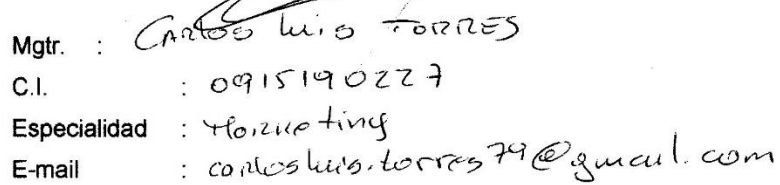 Mgtr. : Carlos Luis Torres
C.I. : 0915190227
Especialidad : Marketing
E-mail : carlosluis.torres79@gmail.com